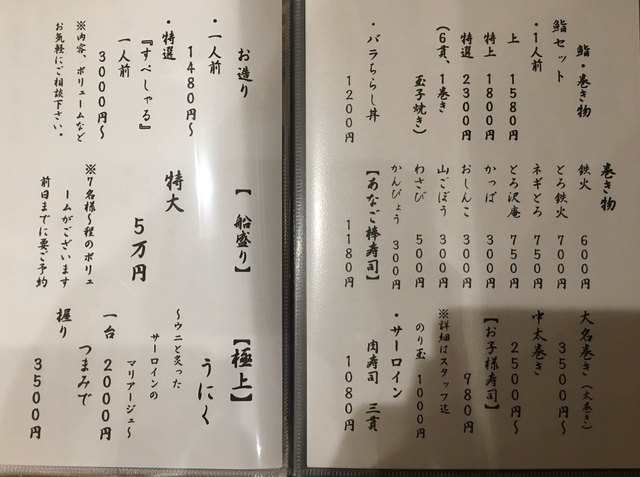 鮨・巻き物
鮨セット
・1人前
上 1580円~
特上 1800円~
特選 2300円~
(6貫、1巻き
玉子焼き)
・バラちらし丼
1200円
巻き物
鉄火 600円
とろ鉄火 700円
ネギとろ 750円
とろ沢庵 750円
かっぱ 300円
おしんこ 300円
山ごぼう 300円
わさび 500円
かんぴょう 300円
【あなご棒寿司】
1180円
大名巻き(太巻き)
3500円~
中太巻き
2500円~
【お子様寿司】
980円
※詳細はスタッフ迄
のり玉 1000円
・サーロイン
肉寿司 三貫
1080円
お造り
・一人前
1480円~
・特選
『すぺしゃる』
一人前
3000円~
※内容、ボリュームなど
お気軽にご相談下さい。
【船盛り】
特大
5万円
※7名様~程のボリュ
ームがございます
前日までに要ご予約
【極上】
うにく
~ウニと炙った
サーロインの
マリアージュ~
一台 2000円
つまみで
握り
3500円